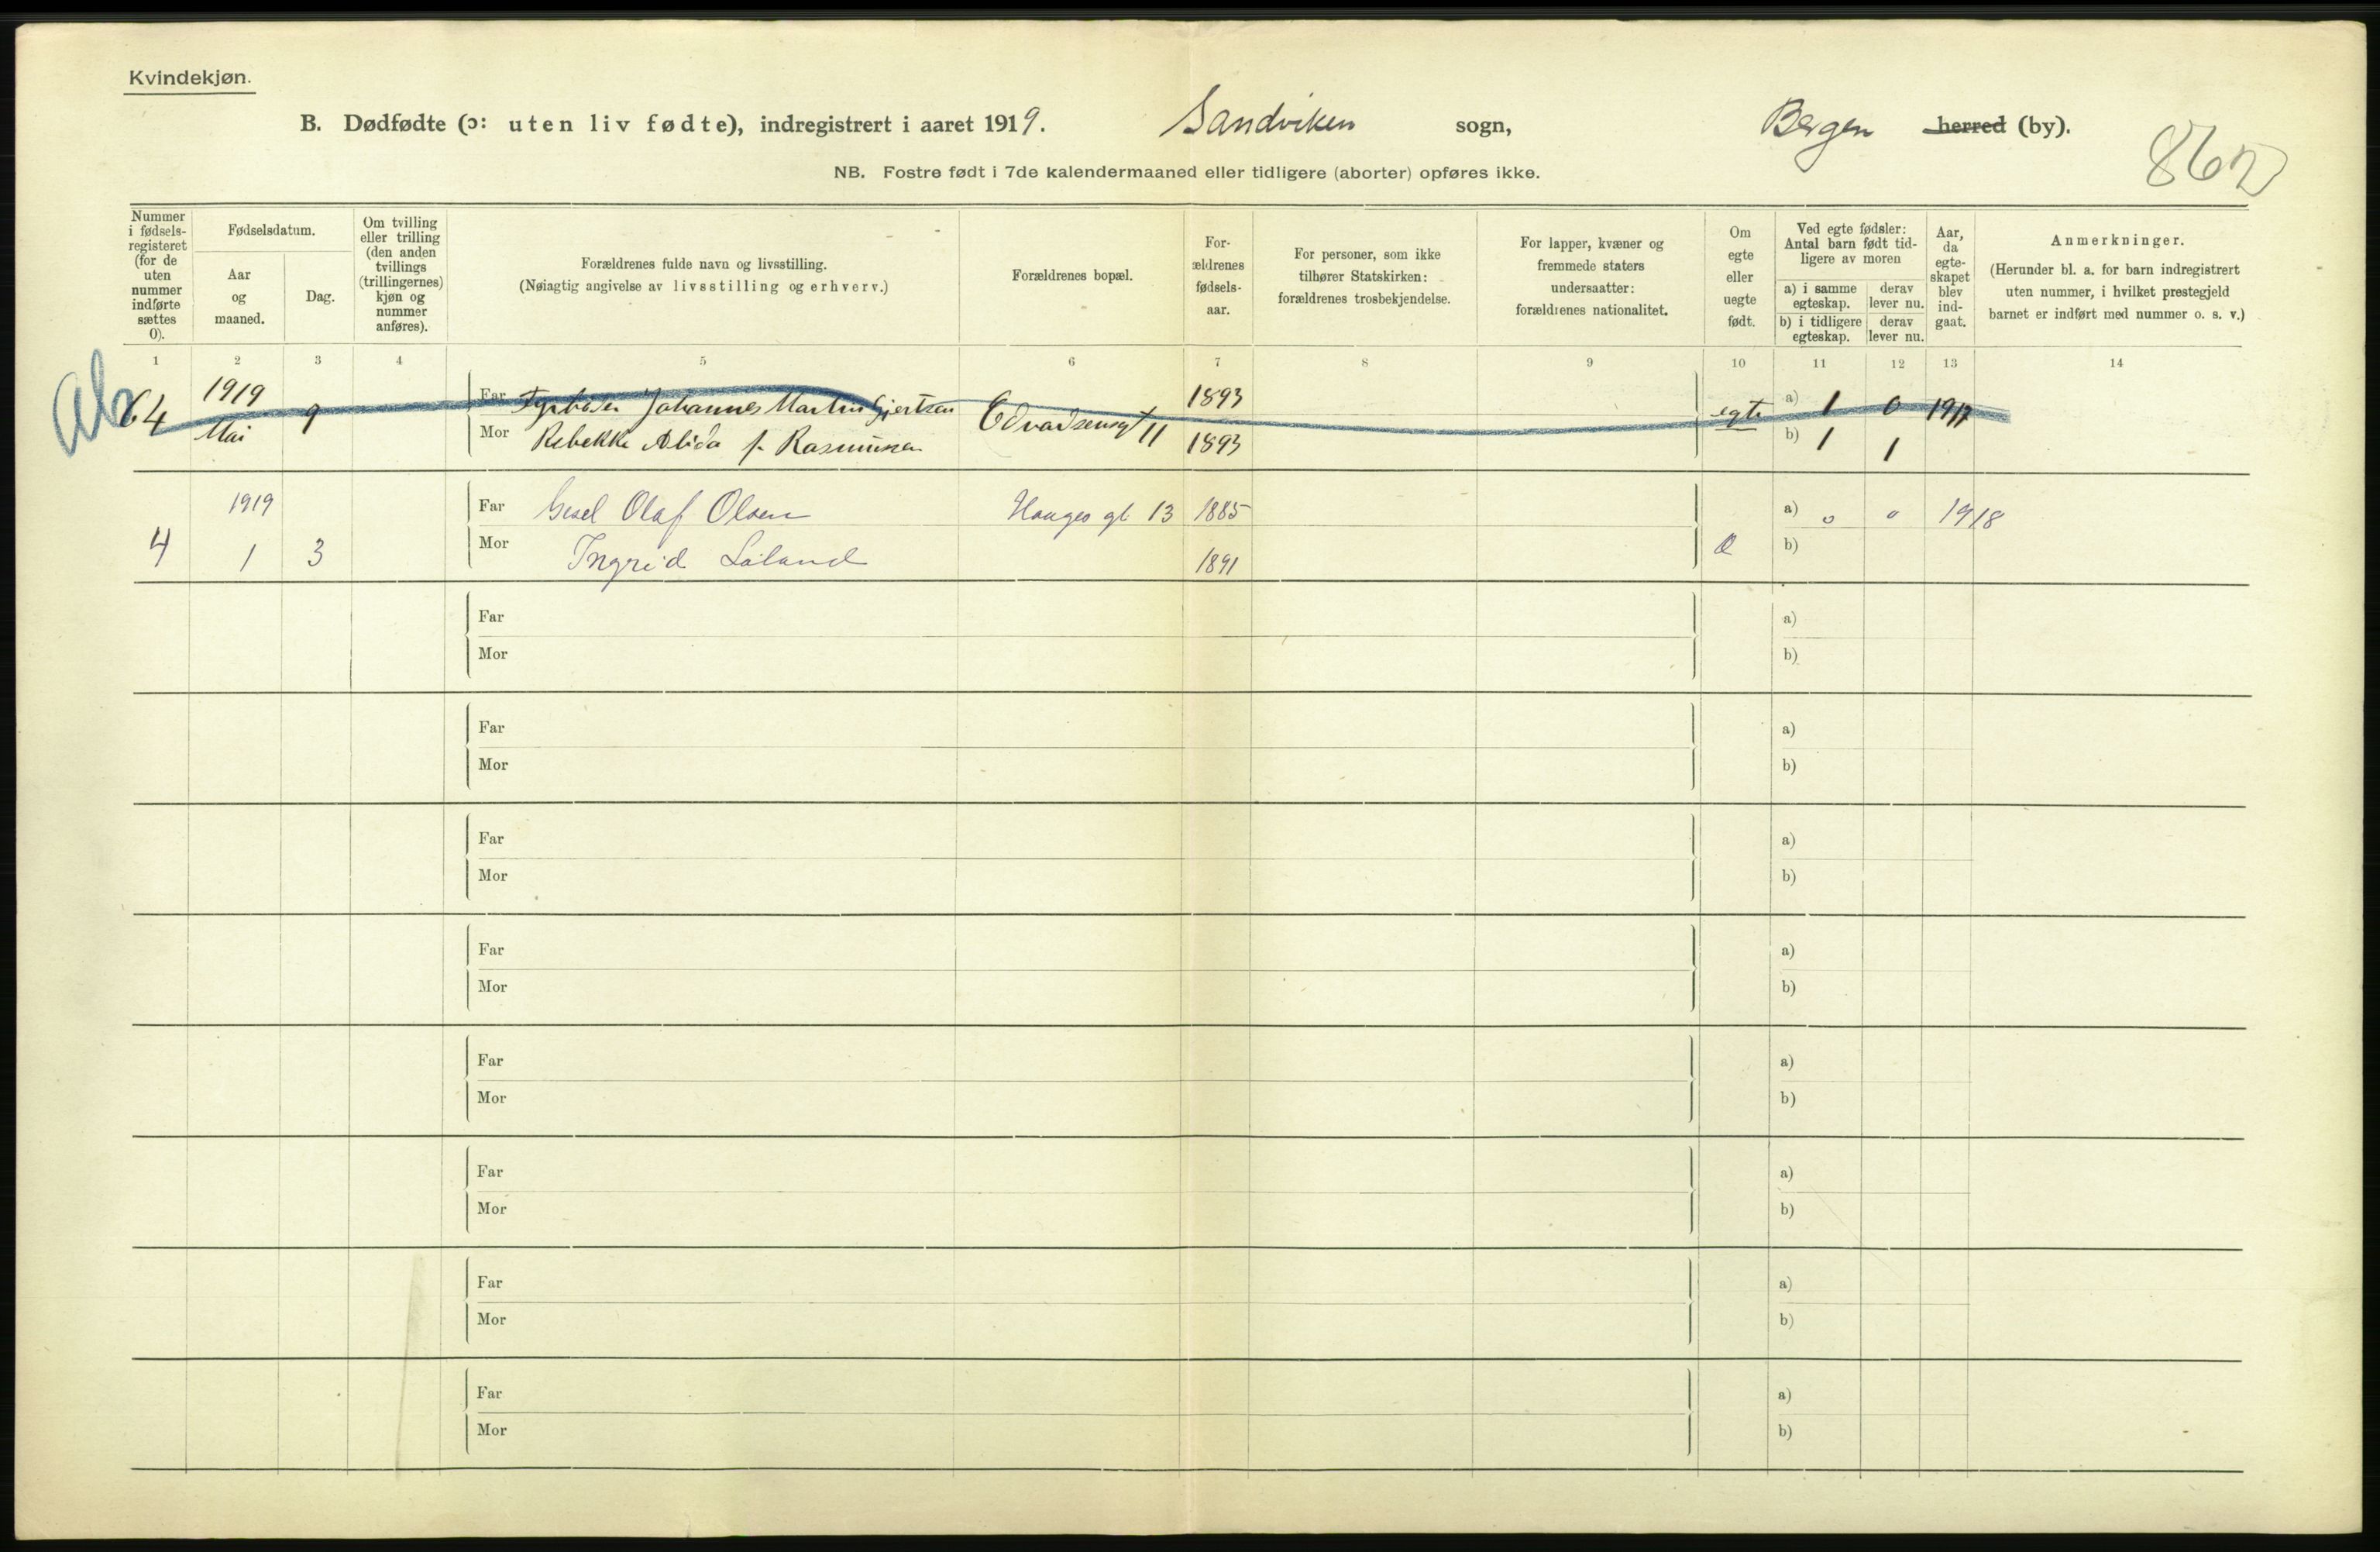 Kvindekjøn.
B. Dødfødte (ɔ: uten liv fødte), indregistrert i aaret 1919. Sandviken sogn, Bergen herred (by).
862
NB. Fostre født i 7de kalendermaaned eller tidligere (aborter) opføres ikke.
Nummer i fødsels-registeret (for de uten nummer indførte sættes 0).
Fødselsdatum.
Aar og maaned.
Dag.
Om tvilling eller trilling (den anden tvillings (trillingernes) kjøn og nummer anføres).
Forældrenes fulde navn og livsstilling.
(Nøiagtig angivelse av livsstilling og erhverv.)
Forældrenes bopæl.
For-ældrenes fødsels-aar.
For personer, som ikke tilhører Statskirken: forældrenes trosbekjendelse.
For lapper, kvæner og fremmede staters undersaatter: forældrenes nationalitet.
Om egte eller uegte født.
Ved egte fødsler: Antal barn født tid-ligere av moren
a) i samme egteskap. derav lever nu.
b) i tidligere egteskap. derav lever nu.
Aar, da egte-skapet blev ind-gaat.
Anmerkninger.
(Herunder bl. a. for barn indregistrert uten nummer, i hvilket prestegjeld barnet er indført med nummer o. s. v.)
1 2 3 4 5 6 7 8 9 10 11 12 13 14
Ab
64 1919 Mai 9
Far Fyrbøter Johannes Martin Gjertsen Edvardsensgt 11 1893 egte a) 1 0 1917
Mor Rebekke Alida f. Rasmussen 1893 b) 1 1
1919
Far Olaf Olsen Hauges gt 13 1885 a) 0 0 1918
4 1 3
Mor Ingrid Løland 1891 b)
Far a)
Mor b)
Far a)
Mor b)
Far a)
Mor b)
Far a)
Mor b)
Far a)
Mor b)
Far a)
Mor b)
Far a)
Mor b)
Far a)
Mor b)